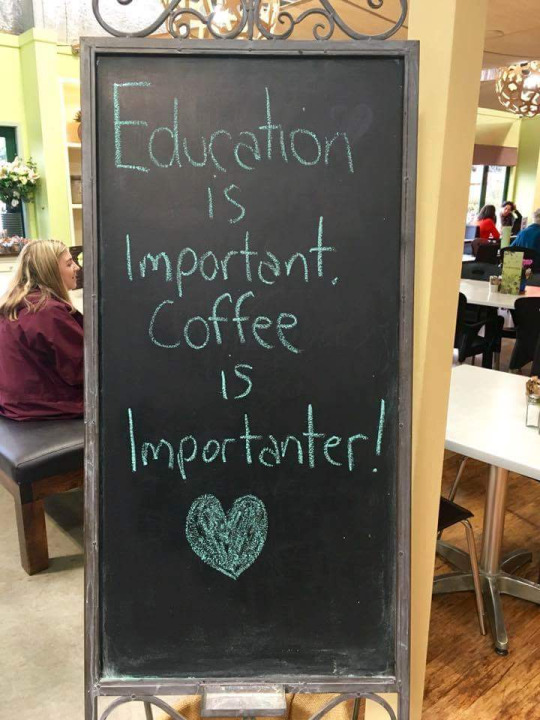 Education
is
Important.
Coffee
is
Importanter!